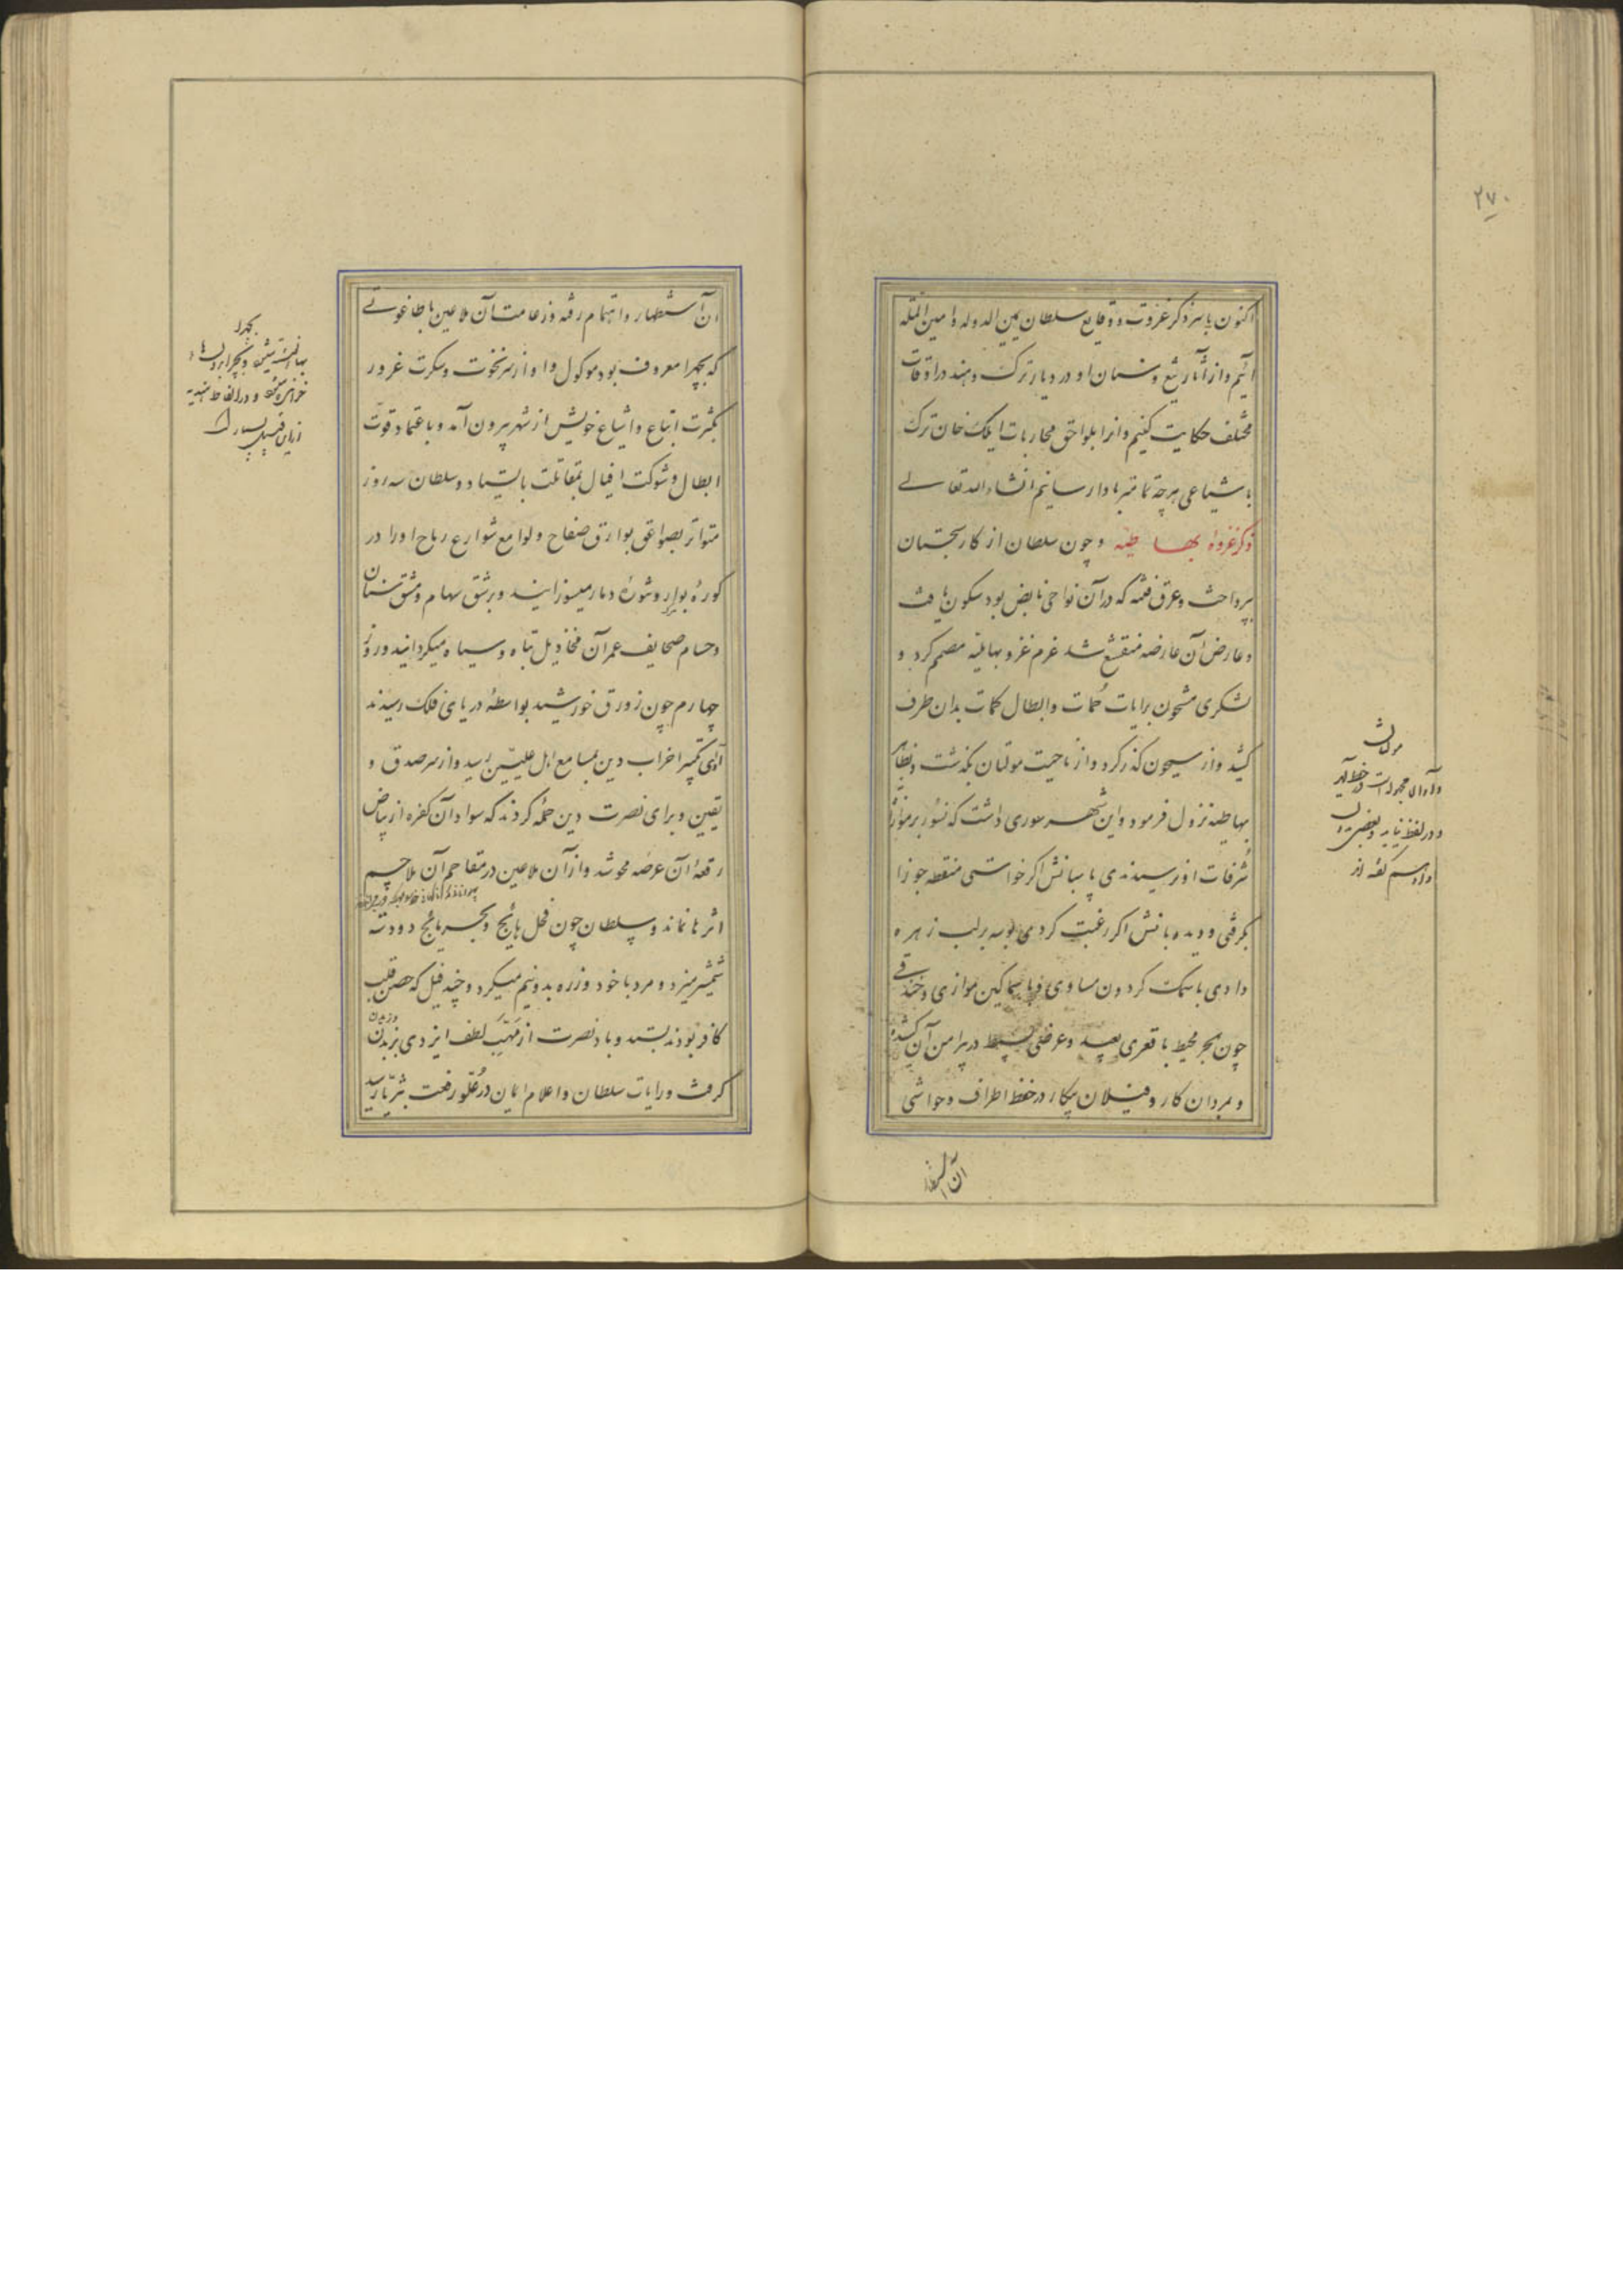 ۲۷۰
اکنون باسر ذکر غزوات و وقایع سلطان یمین الدوله و امین المله
آئیم و از آثار تیغ و سنان او در دیار ترک و هند در اوقات
مختلف حکایت کنیم و آنرا بلواحق محاربات ایلک خان ترک
باشباعی هرچه تمامتر بادا رسانیم انشاءالله تعالی
ذکر غزوهٔ بهاطیه و چون سلطان از کار سجستان
بپرداخت و عرق فتنه که در آن نواحی نابض بود سکون یافت
و عارض آن عارضه منقشع شد عزم غزو بهاطیه مصمم کرد و
لشکری مشحون برایات حمات و ابطال کمات بدان طرف
کشید و از سیحون گذر کرد و از ناحیت مولتان بگذشت و بظاهر
بهاطیه نزول فرمود و این شهر سوری داشت که نسور بر موازات
شرفات او نرسیدندی پاسبانش اگر خواستی منطقه جوزا
بگرفتی و دیده بانش اگر رغبت کردی بوسه بر لب زهره
دادی با سمک گردون مساوی و با سماکین موازی و خندقی
چون بحر محیط با قعری بعید و عرضی بسیط در پیرامن آن کشیده
و بمردان کار و فیلان پیکار در حفظ اطراف و حواشی
مولتان
آن استظهار
آن استظهار و اهتمام رفته و زعامت آن ملاعین با طاغوتی
که بجهرا معروف بود موکول و او از سر نخوت و سکرت غرور
بکثرت اتباع و اشیاع خویش از شهر بیرون آمد و باعتماد قوت
ابطال و شوکت افیال بمقاتلت بایستاد و سلطان سه روز
متواتر بصواعق بوارق صفاح و لوامع شوارع رماح او را در
کورهٔ بوار و شورهٔ دمار میسوزانید و برشق سهام و مشق سنان
و حسام صحایف عمر آن مخاذیل تباه و سیاه میگردانید و روز
چهارم چون زورق خورشید بواسطهٔ دریای فلک رسید ند
آوای تکبیر احزاب دین بمسامع اهل علیین رسید و از سر صدق و
یقین و برای نصرت دین حمله کردند که سواد آن کفره از بیاض
رقعهٔ آن عرصه محو شد و از آن ملاعین در مقاحم آن ملاحم
اثر ها نماند و سلطان چون فحل هائج و بحر مائج دو دسته
شمشیر میزد و مرد با خود و زره بدو نیم میکرد و چند فیل که حصن قلب
کافر بودند بستد و باد نصرت از مهبّ لطف ایزدی بزیدن
وزیدن
گرفت و رایات سلطان و اعلام ایمان در علو رفعت بثریا رسید
بجهرا